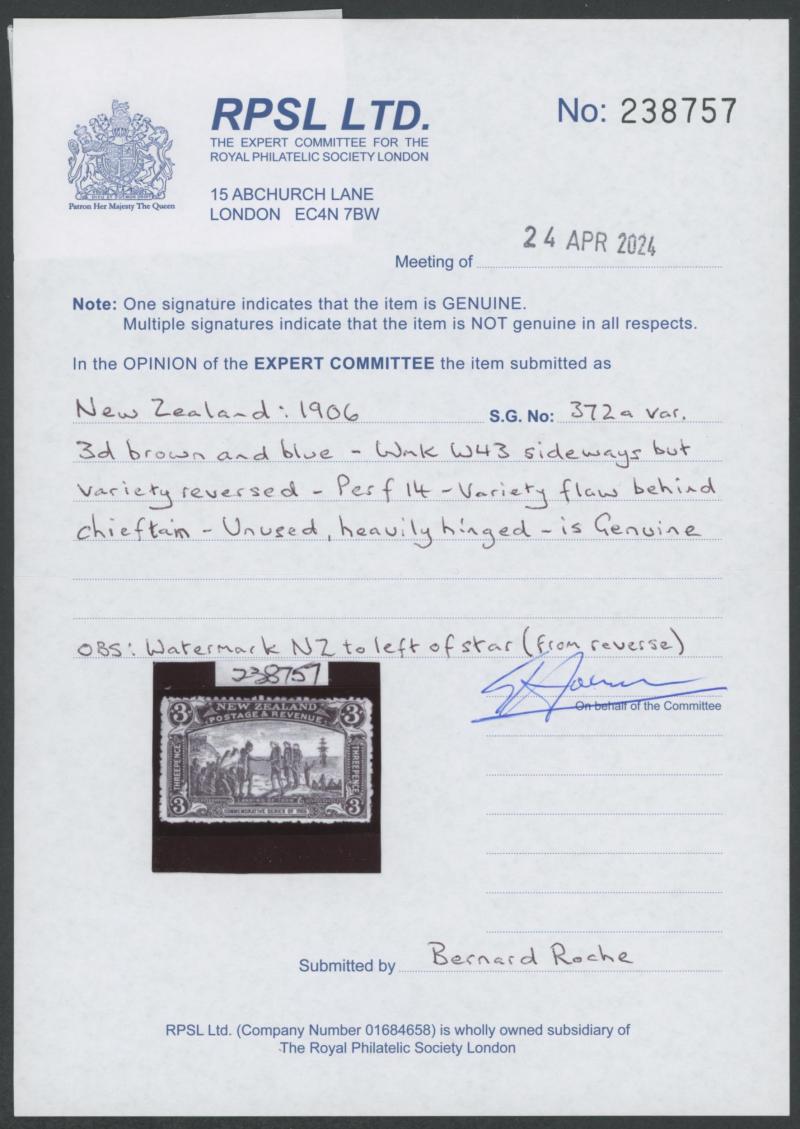 RPSL LTD.
THE EXPERT COMMITTEE FOR THE
ROYAL PHILATELIC SOCIETY LONDON
No: 238757
Patron Her Majesty The Queen
15 ABCHURCH LANE
LONDON EC4N 7BW
24 APR 2024
Meeting of
Note: One signature indicates that the item is GENUINE.
Multiple signatures indicate that the item is NOT genuine in all respects.
In the OPINION of the EXPERT COMMITTEE the item submitted as
New Zealand: 1906 S.G. No: 372a var.
3d brown and blue - Wmk W43 sideways but
variety reversed - Perf 14 - Variety flaw behind
chieftain - Unused, heavily hinged - is Genuine
OBS: Watermark NZ to left of star (from reverse)
238757
NEW ZEALAND
POSTAGE & REVENUE
3 3
THREEPENCE THREEPENCE
3 3
COMMEMORATIVE SERIES OF 1906
On behalf of the Committee
Submitted by Bernard Roche
RPSL Ltd. (Company Number 01684658) is wholly owned subsidiary of
The Royal Philatelic Society London